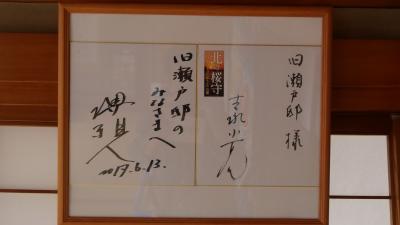 旧瀬戸邸 様
北の桜守
吉永小百合
旧瀬戸邸の
みなさまへ
2017.6.13.